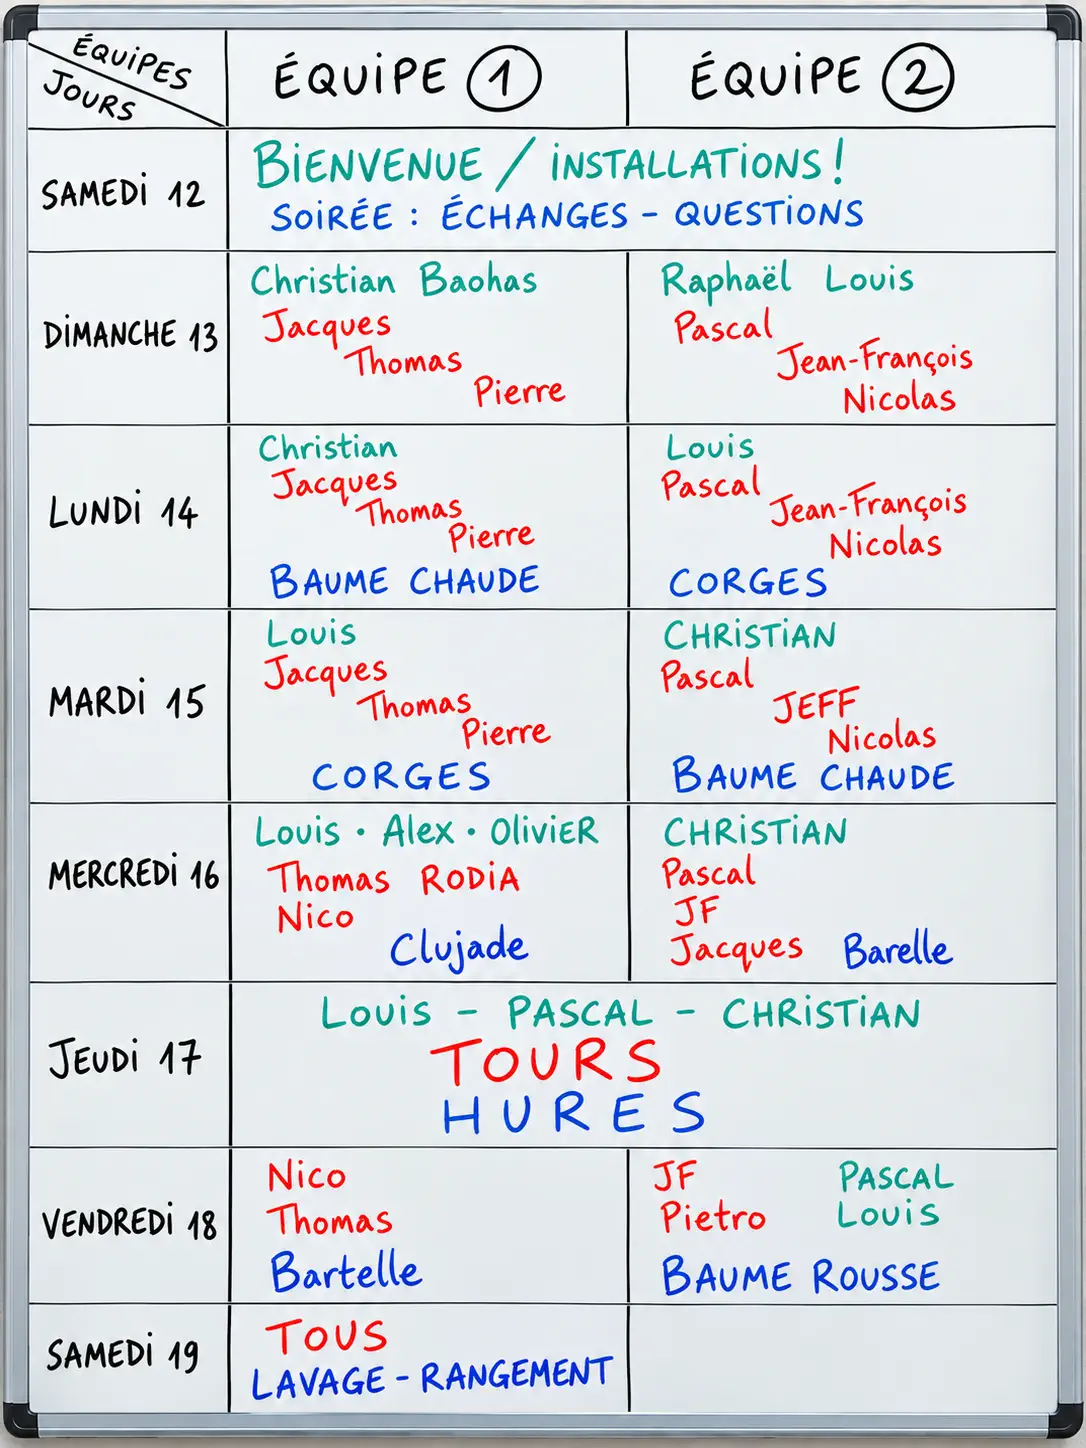 ÉQUIPES
JOURS
ÉQUIPE 1
ÉQUIPE 2
SAMEDI 12
BIENVENUE / INSTALLATIONS !
SOIRÉE : ÉCHANGES - QUESTIONS
DIMANCHE 13
Christian Baohas
Jacques
Thomas
Pierre
Raphaël Louis
Pascal
Jean-François
Nicolas
LUNDI 14
Christian
Jacques
Thomas
Pierre
BAUME CHAUDE
Louis
Pascal
Jean-François
Nicolas
CORGES
MARDI 15
Louis
Jacques
Thomas
Pierre
CORGES
CHRISTIAN
Pascal
JEFF
Nicolas
BAUME CHAUDE
MERCREDI 16
Louis · Alex · OliviER
Thomas RODIA
Nico
Clujade
CHRISTIAN
Pascal
JF
Jacques Barelle
JEUDI 17
Louis - PASCAL - CHRISTIAN
TOURS
HURES
VENDREDI 18
Nico
Thomas
Bartelle
JF PASCAL
Pietro Louis
BAUME ROUSSE
SAMEDI 19
TOUS
LAVAGE - RANGEMENT